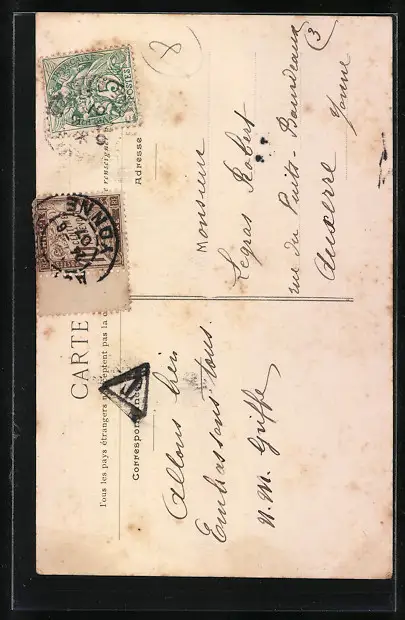 CARTE
Tous les pays étrangers n'acceptent pas la
Correspondance
Allons bien
Embrassons tous.
N. M. Griffe
Adresse
Monsieur
Legras Robert
rue du Puits-Bourdeaux
3
Auxerre
Yonne
5
POSTES
YONNE
T